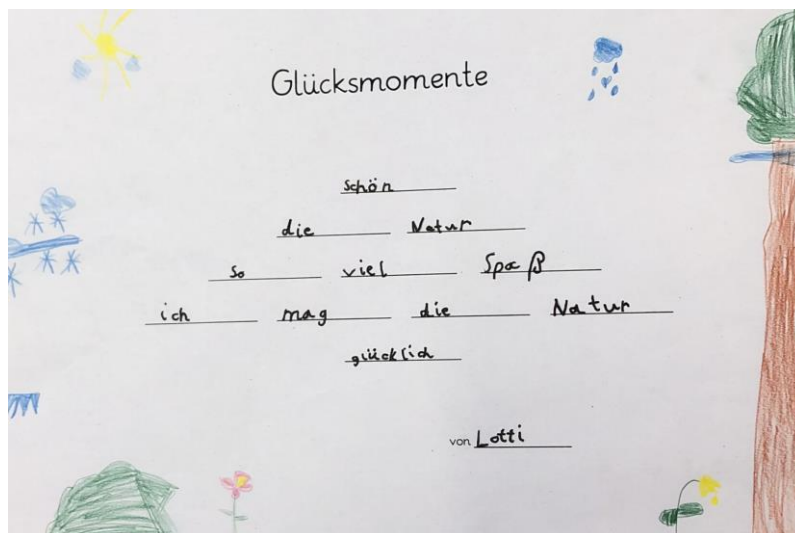 Glücksmomente
schön
die Natur
so viel Spaß
ich mag die Natur
glücklich
von Lotti